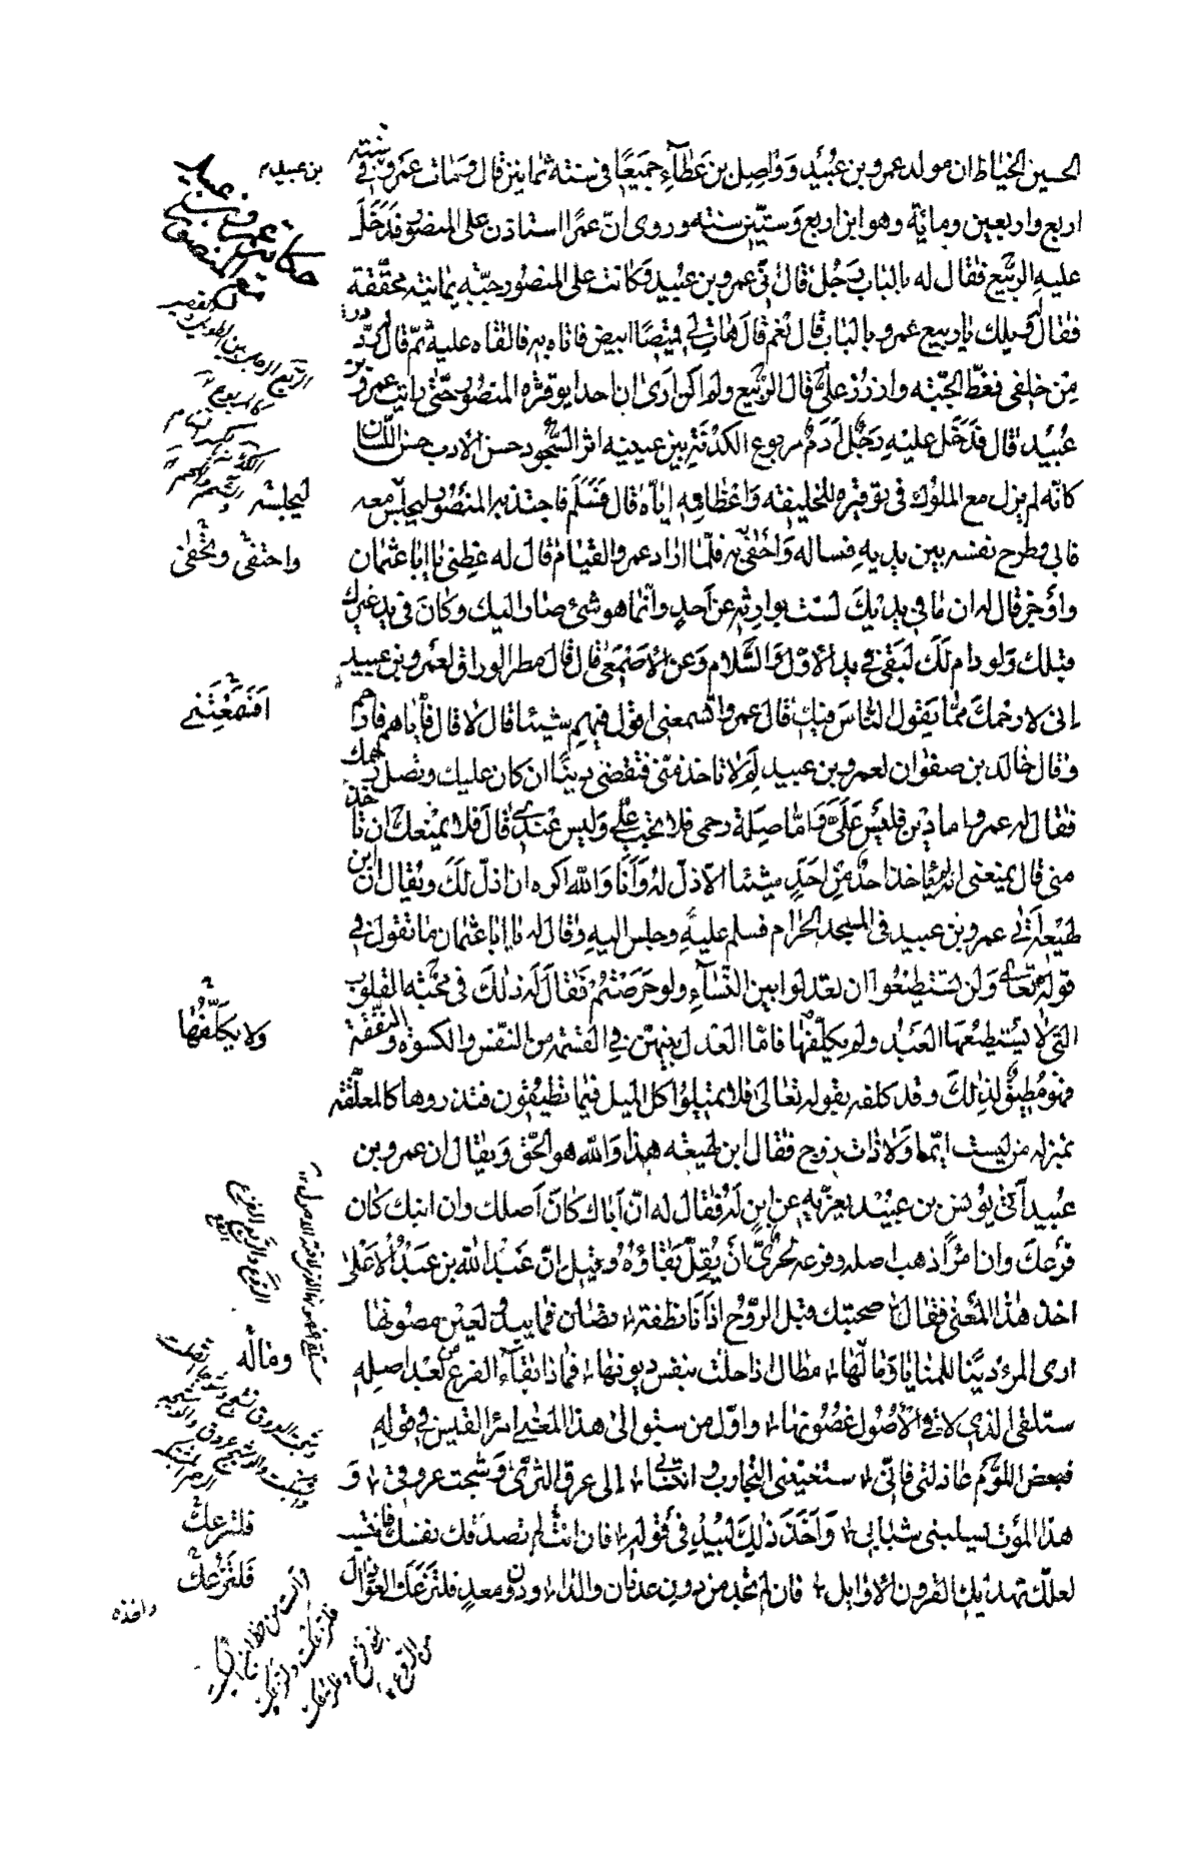 الحسين الخياط ان مولد عمرو بن عبيد وواصل بن عطآء جميعًا فى سنة ثمانين قال ومات عمرو فى سنة
اربع واربعين ومائة وهو ابن اربع وستّين سنة وروى انّ عمرًا استاذن على المنصور فدخل
عليه الربيع فقال له بالباب رجل قال انّى عمرو بن عبيد وكانت على المنصور جبّة يمانية محققة
فقال ويلك يا ربيع عمرو بالباب قال نعم قال هات لى قميصًا ابيض فاتاه به فالقاه عليه ثمّ قال زرّه
من خلفى فغطّ الجبّة وازرر علىّ قال الربيع ولم اكن ارى ان احدا يوقّره المنصور حتّى رايت عمرو بن
عبيد، قال فدخل عليه رجل آدم مربوع الكدنة بين عينيه اثر السّجود حسن الادب حسن اللسان
كانّه لم يزل مع الملوك فى توقيره للخليفة واعظامه ايّاه قال فسلّم فاجتذبه المنصور ليجلس معه
فابى وطرح نفسه بين يديه فساله واحفى به فلمّا اراد عمرو القيام قال له عظنى يا ابا عثمان
واوجز قال له ان ما فى يديك لست بوارثه عن احد وانّما هو شىء صار اليك وكان فى يد غيرك
قبلك ولو دام لك لبقى فى يد الاوّل والسّلام وعن الاصمعى قال قال مطر الوراق لعمرو بن عبيد
انى لارحمك ممّا يقول النّاس فيك قال عمرو اتسمعنى اقول فيهم شيئا قال لا قال فايّاهم فارحم
وقال خالد بن صفوان لعمرو بن عبيد لم لا تاخذ منّى فتقضى دينًا ان كان عليك وتصل رحمك
فقال له عمرو اما دين فليس علىّ وامّا صلة رحمى فلا يجب علىّ وليس عندى قال فلا يمنعك ان تاخذ
منى قال يمنعنى انه لم ياخذ احد من احد شيئا الّا ذلّ له وانا والله اكره ان اذلّ لك ويقال ان ابن
لهيعة اتى عمرو بن عبيد فى المسجد الحرام فسلم عليه وجلس اليه وقال له يا ابا عثمان ما تقول فى
قوله تعالى ولن تستطيعوا ان تعدلوا بين النّسآء ولو حرصتم فقال له ذلك فى محبّة القلوب
التى لا يستطيعها العبد ولم يكلّفها فامّا العدل بينهنّ فى القسمة من النّفس والكسوة والنفقة
فهو مطيق لذلك وقد كلفه بقوله تعالى فلا تميلوا كل الميل فيما تطيقون فتذروها كالمعلّقة
بمنزلة من ليست ايّما ولا ذات زوج فقال ابن لهيعة هذا والله هو الحقّ ويقال ان عمرو بن
عبيد اتى يونس بن عبيد يعزّيه عن ابن له فقال له انّ اباك كان اصلك وان ابنك كان
فرعك وان امرًا ذهب اصله وفرعه لحرىّ ان يقلّ بقاؤه وقيل انّ عبد الله بن عبد الاعلى
اخذ هذا المعنى فقال صحبتك قبل الرّوح اذ انا نطفة تصان فما يبدو لعين مصونها
ارى المرء دينا للمنايا وما لها مطال اذا حلت بنفس ديونها فماذا بقآء الفرع من بعد اصله
ستلقى الذى لاقى الاصول غصونها واوّل من سبق الى هذا المعنى امرء القيس فى قوله
فبعض اللوم عاذلتى فانّى ستغنينى التجارب وانتسابى الى عرق الثرى وشجت عروقى و
هذا الموت يسلبنى شبابى واخذ ذلك لبيد فى قوله فان انت لم تصدقك نفسك فانتسب
لعلّك تهديك القرون الاوايل فان لم تجد من دون عدنان والدا ودون معد فلتزعك العواذل
بن عبيد
حكاية عمرو بن عبيد
مع المنصور
ليجلسه
واحتفى وتحفّى
افتسمعنى
ولا يكلّفها
وماله
فلتزعك
فلتزعك
واخذه